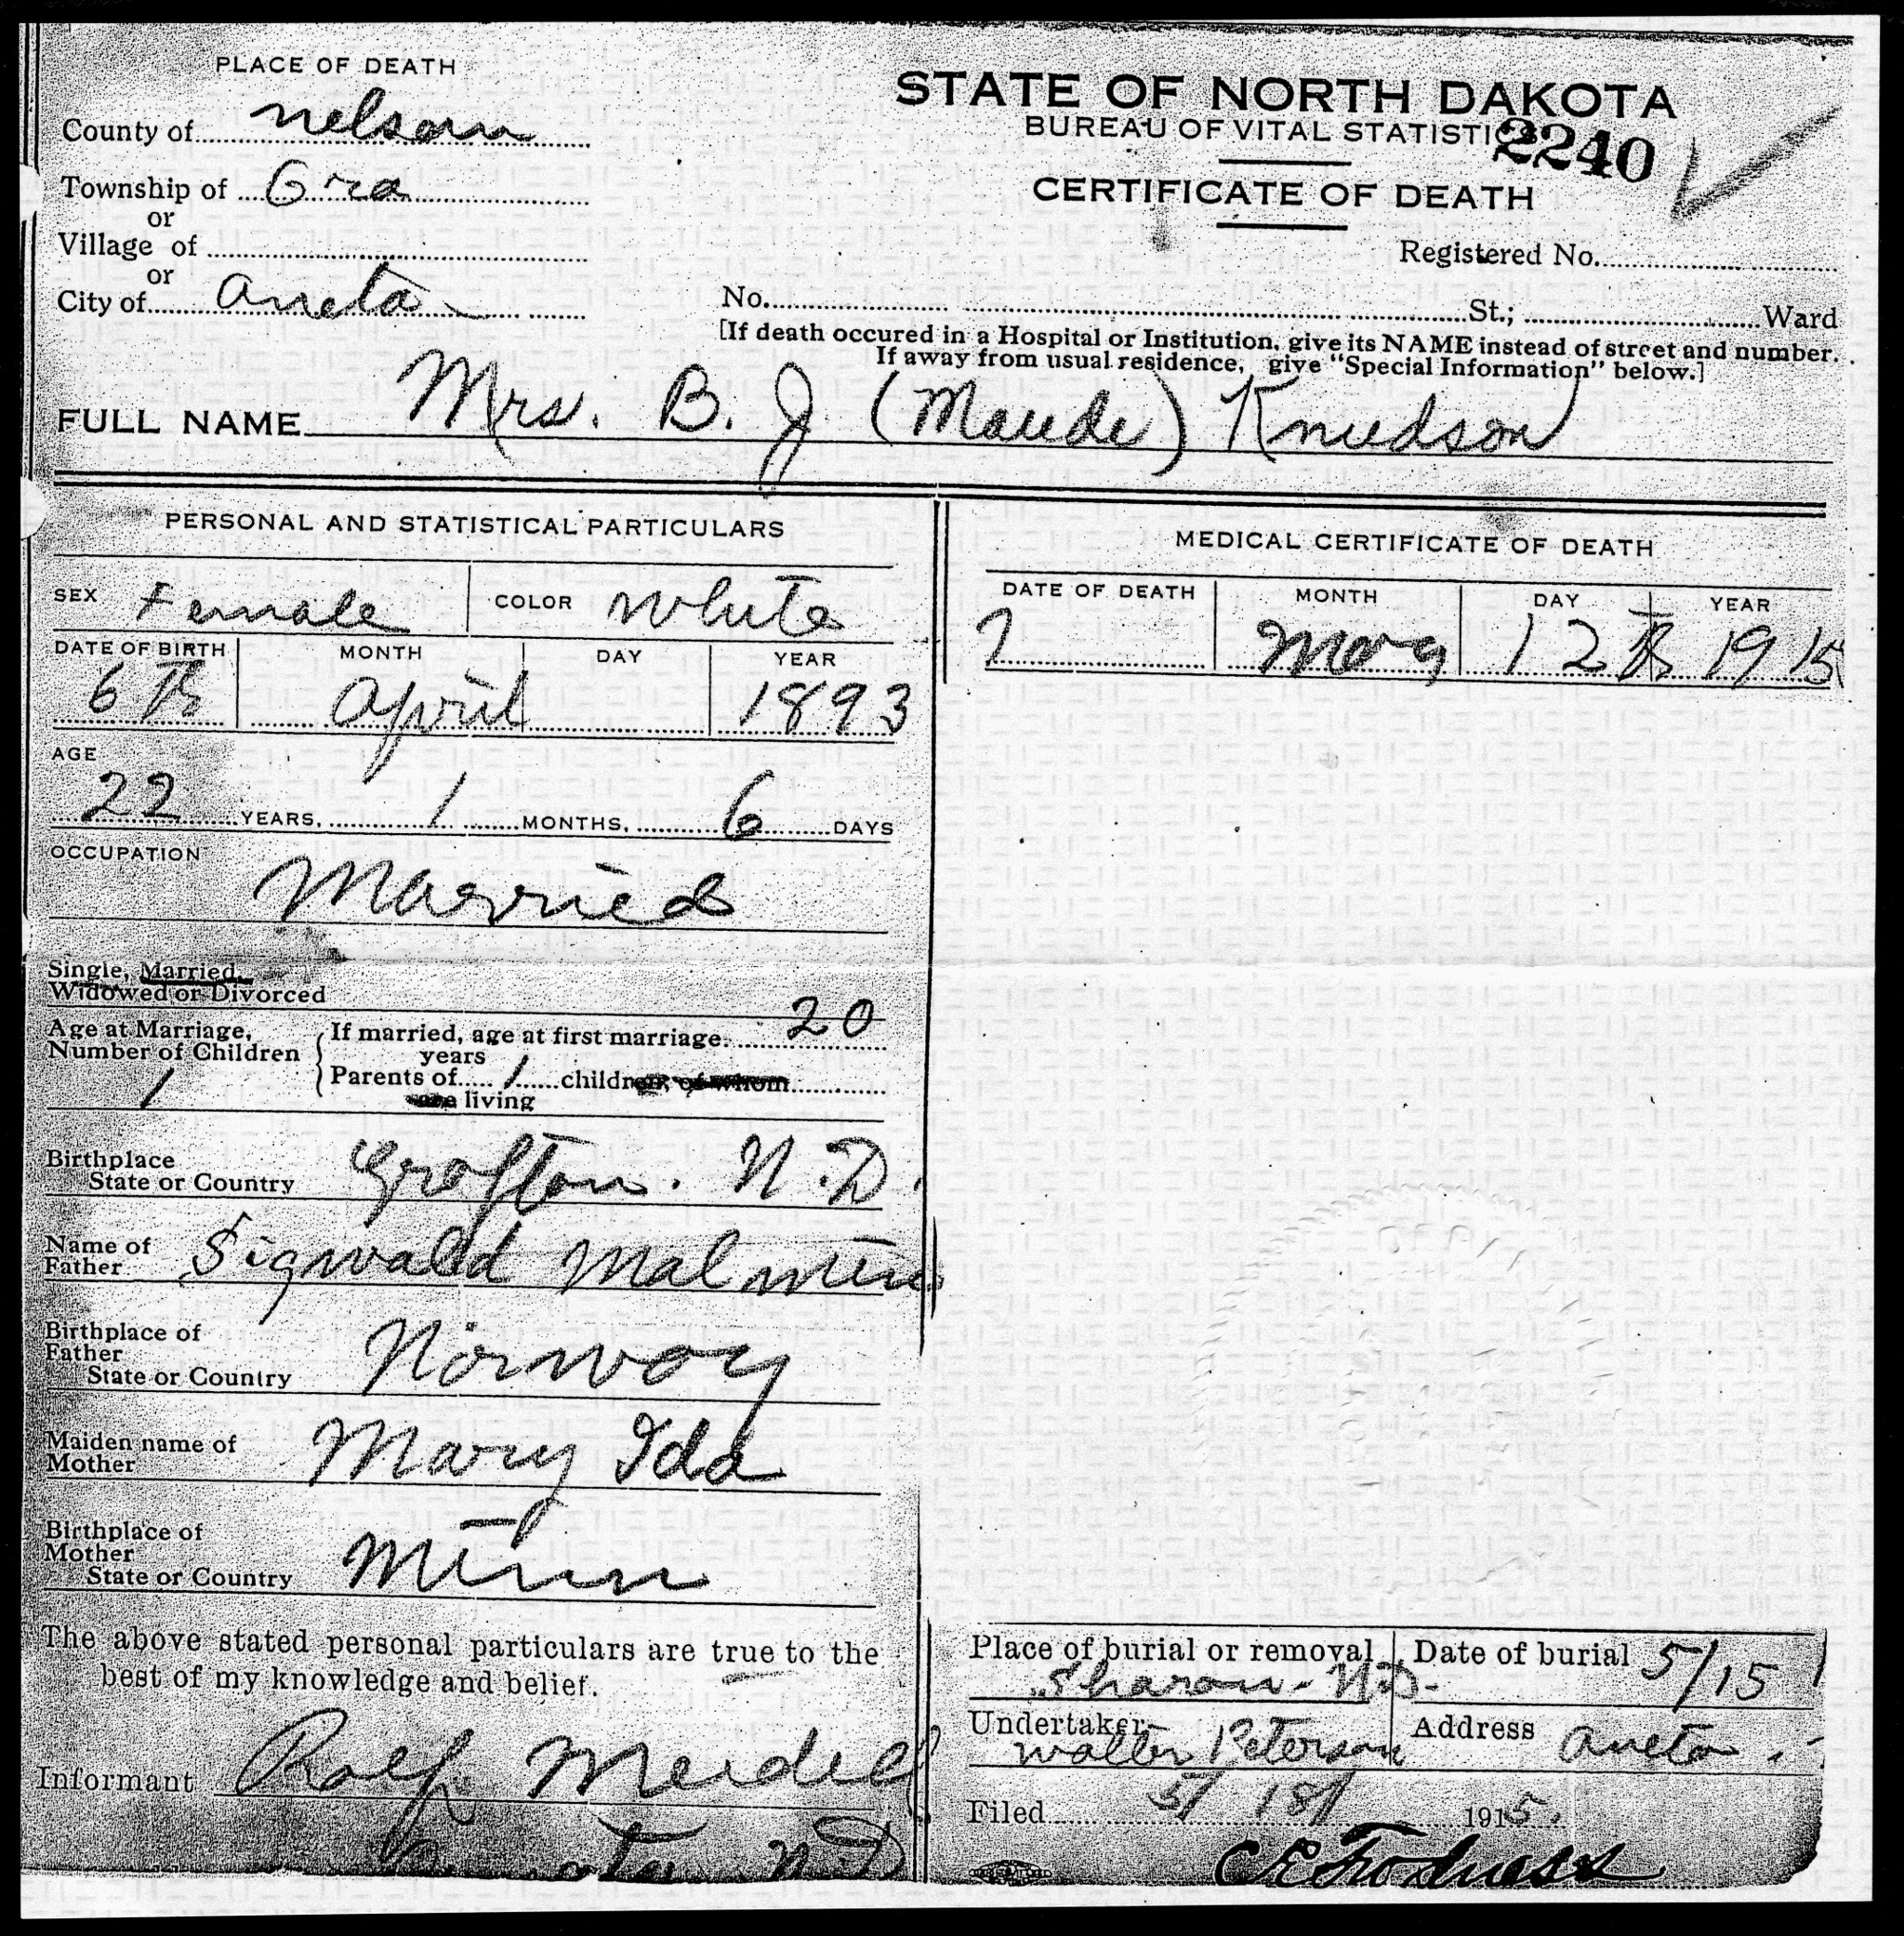 PLACE OF DEATH
County of Nelson
Township of Ora
or
Village of
or
City of Aneta
STATE OF NORTH DAKOTA
BUREAU OF VITAL STATISTICS
2240
CERTIFICATE OF DEATH
Registered No.
No. St.; Ward
[If death occured in a Hospital or Institution, give its NAME instead of street and number.
If away from usual residence, give "Special Information" below.]
FULL NAME Mrs. B. J. (Maude) Knudson
PERSONAL AND STATISTICAL PARTICULARS
SEX Female COLOR White
DATE OF BIRTH MONTH DAY YEAR
6th April 1893
AGE
22 YEARS, 1 MONTHS, 6 DAYS
OCCUPATION
Married
Single, Married,
Widowed or Divorced
Age at Marriage, If married, age at first marriage 20
Number of Children years
1 Parents of 1 children, of whom
are living
Birthplace
State or Country Grafton. N.D.
Name of
Father Sigwald Malmin
Birthplace of
Father
State or Country Norway
Maiden name of
Mother Mary Ida
Birthplace of
Mother
State or Country Minn
The above stated personal particulars are true to the
best of my knowledge and belief.
Informant Rolf
N.D
MEDICAL CERTIFICATE OF DEATH
DATE OF DEATH MONTH DAY YEAR
May 12th 1915
Place of burial or removal Date of burial 5/15
Sharon. N.D.
Undertaker Address Aneta.
Walter Peterson
Filed 5/18/ 1915.